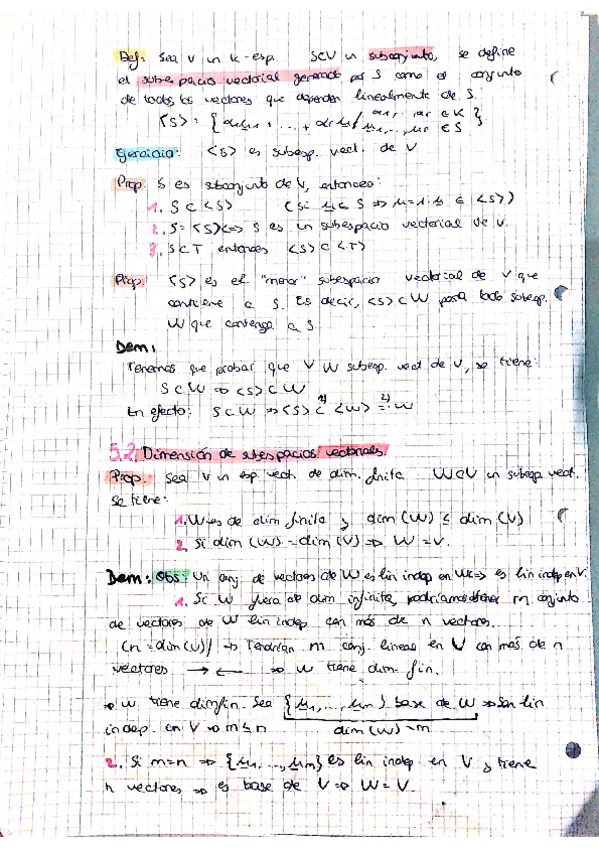 Def. Sea V un K-esp. S⊂V un subconjunto, se define
el subespacio vectorial generado por S como el conjunto
de todos los vectores que dependen linealmente de S.
<S> = { α1u1 + ... + αrur / α1, ..., αr ∈ K u1, ..., ur ∈ S }
Ejercicio: <S> es subesp. vect. de V
Prop. S es subconjunto de V, entonces:
1. S ⊂ <S> (Si u ∈ S ⇒ u = 1·u ∈ <S>)
2. S = <S> ⇔ S es un subespacio vectorial de V.
3. S⊂T entonces <S> ⊂ <T>
Prop. <S> es el "menor" subespacio vectorial de V que
contiene a S. Es decir, <S> ⊂ W para todo subesp.
W que contenga a S.
Dem:
Tenemos que probar que ∀ W subesp. vect de V, se tiene:
S ⊂ W ⇒ <S> ⊂ W
En efecto: S ⊂ W ⇒ <S> ⊂ <W> = W
5.2. Dimensión de subespacios vectoriales.
Prop. Sea V un esp. vect. de dim. finita W⊂V un subesp vect.
Se tiene:
1. W es de dim finita y dim (W) ≤ dim (V)
2. Si dim (W) = dim (V) ⇒ W = V.
Dem: Obs: Un conj. de vectores de W es lin indep en W ⇔ es lin indep en V.
1. Si W fuera de dim infinita, podríamos obtener un conjunto
de vectores de W lin indep con más de n vectores.
(n = dim(V)) ⇒ Tendrían un conj. lineas en V con más de n
vectores →← ⇒ W tiene dim. fin.
⇒ W tiene dim fin. Sea {u1, ..., um} base de W ⇒ Son lin
indep. en V ⇒ m ≤ n dim (W) = m
2. Si m=n ⇒ {u1, ..., um} es lin indep en V y tiene
n vectores ⇒ es base de V ⇒ W = V.